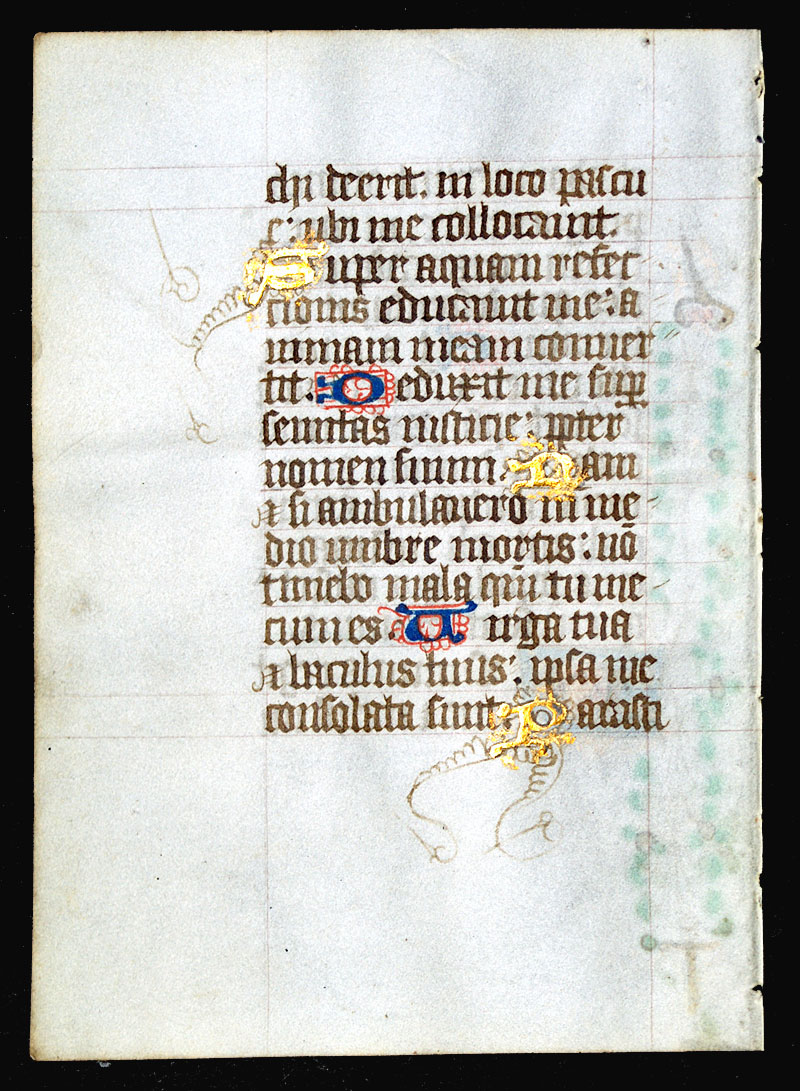 chi deerit. in loco pascu
e: ubi me collocauit.
Super aquam refec
cionis educauit me: a
nimam meam conuer
tit. Deduxit me sup
semitas iusticie: ppter
nomen suum. Nam
⁊ si ambulauero in me
dio umbre mortis: nō
timebo mala qm̄ tu me
cum es. Uirga tua
⁊ baculus tuus: ipsa me
consolata sunt. Parasti